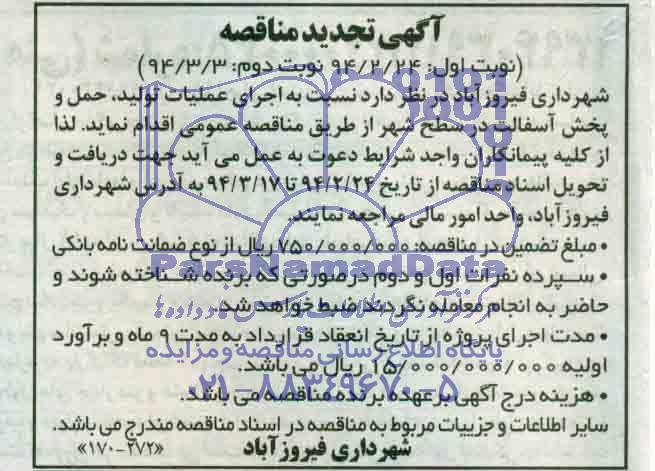 آگهی تجدید مناقصه
(نوبت اول: ۹۴/۲/۲۴ نوبت دوم: ۹۴/۳/۳)
شهرداری فیروزآباد در نظر دارد نسبت به اجرای عملیات تولید، حمل و
پخش آسفالت در سطح شهر از طریق مناقصه عمومی اقدام نماید. لذا
از کلیه پیمانکاران واجد شرایط دعوت به عمل می آید جهت دریافت و
تحویل اسناد مناقصه از تاریخ ۹۴/۲/۲۴ تا ۹۴/۳/۱۷ به آدرس شهرداری
فیروزآباد، واحد امور مالی مراجعه نمایند.
• مبلغ تضمین در مناقصه: ۷۵۰/۰۰۰/۰۰۰ ریال از نوع ضمانت نامه بانکی
ParsNamadData
• سپرده نفرات اول و دوم در صورتی که برنده شناخته شوند و
حاضر به انجام معامله نگردند ضبط خواهد شد.
• مدت اجرای پروژه از تاریخ انعقاد قرارداد به مدت ۹ ماه و برآورد
پایگاه اطلاع رسانی مناقصه و مزایده
اولیه ۱۵/۰۰۰/۰۰۰/۰۰۰ ریال می باشد.
۰۲۱-۸۸۳۴۹۶۷۰-۵
• هزینه درج آگهی بر عهده برنده مناقصه می باشد.
سایر اطلاعات و جزییات مربوط به مناقصه در اسناد مناقصه مندرج می باشد.
شهرداری فیروزآباد
«۱۷۰-۲۷۲»